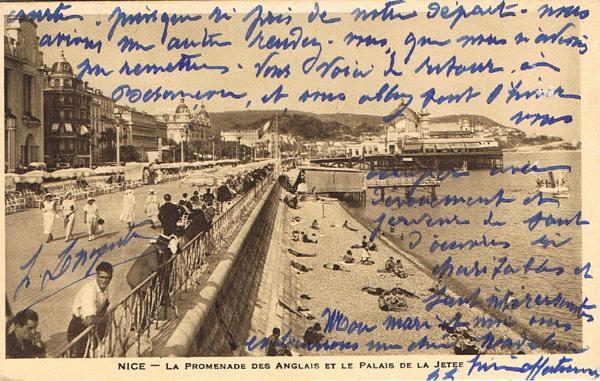 courte, puisque si près de notre départ - nous
avions un autre rendez-vous, que nous n'avions
pu remettre. Vous voici de retour, à
Besançon, et vous allez pour l'hiver
vous
occuper avec
dévouement et
ferveur de tant
d'œuvres si
charitables et
tant intéressantes
Mon mari et moi vous
embrassons ma chère
bien affectueusement
NICE - LA PROMENADE DES ANGLAIS ET LE PALAIS DE LA JETÉE